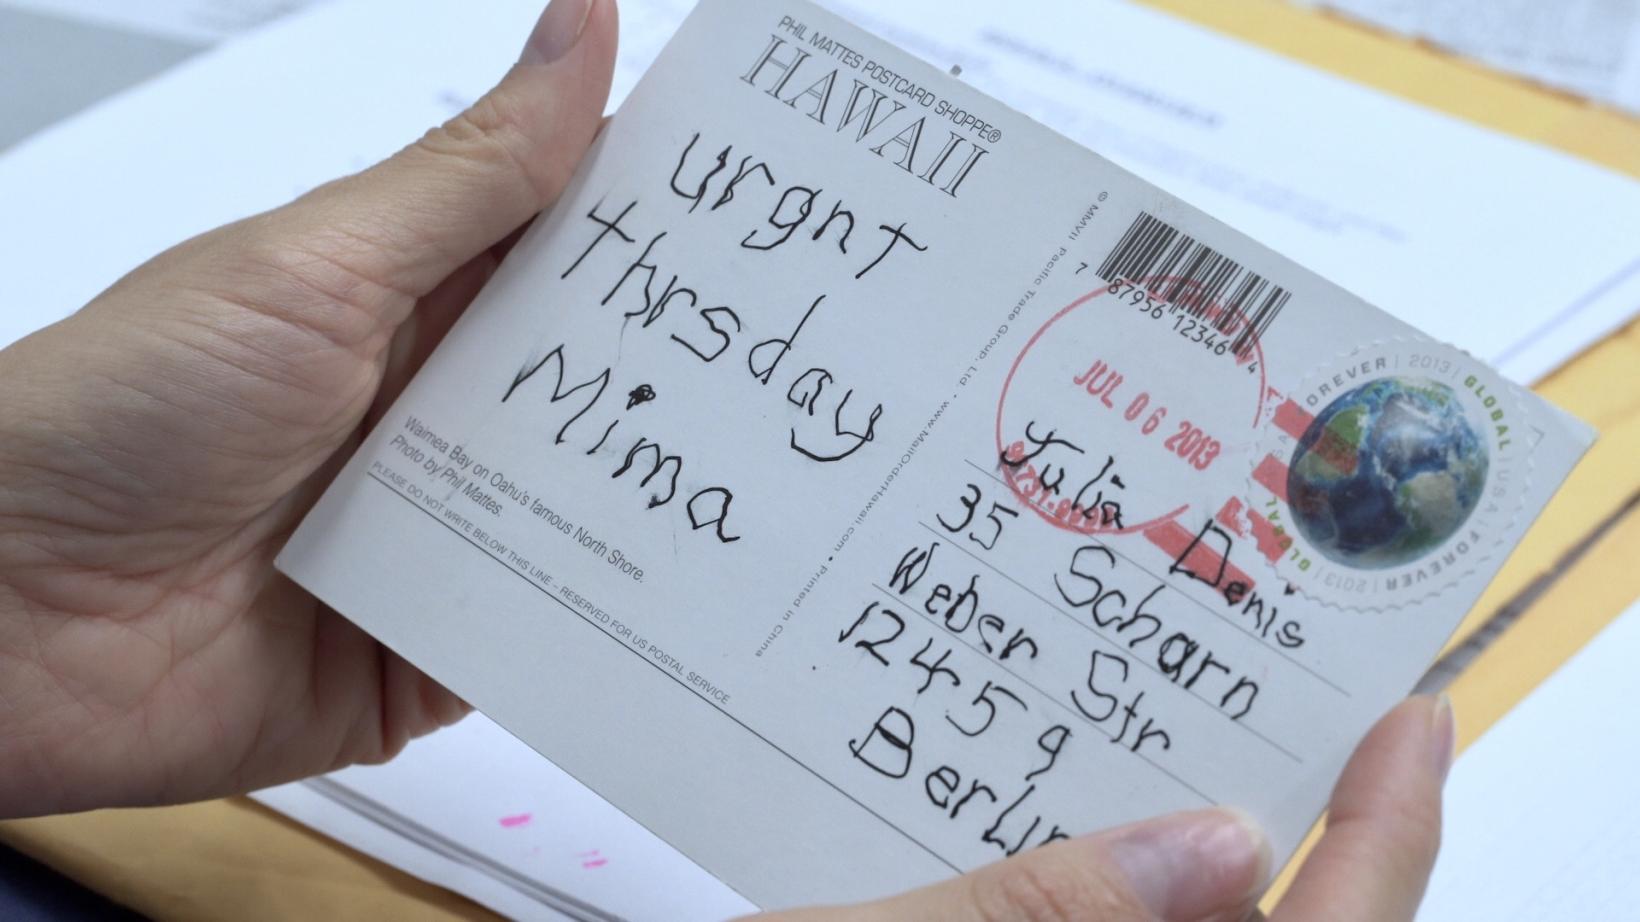 PHIL MATTES POSTCARD SHOPPE®
HAWAII
urgnt
thrsday
Mima
Waimea Bay on Oahu's famous North Shore.
Photo by Phil Mattes.
PLEASE DO NOT WRITE BELOW THIS LINE – RESERVED FOR US POSTAL SERVICE
© MMVII Pacific Trade Group, Ltd. • www.MailOrderHawaii.com • Printed in China
7 87956 12346 4
JUL 06 2013
FOREVER | 2013 | GLOBAL | USA | FOREVER | 2013 | GLOBAL
Julia Denis
35 Scharn
Weber Str
12459
Berlin